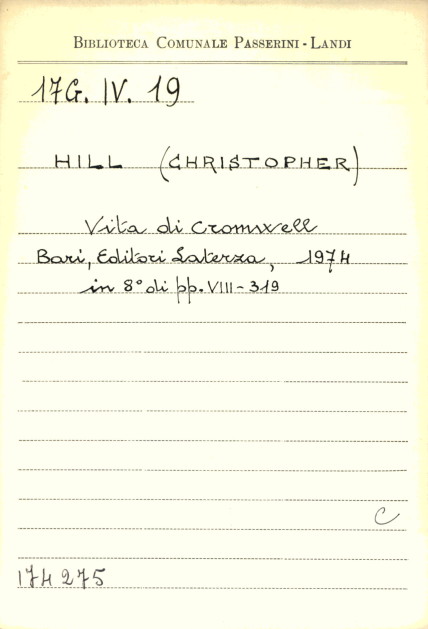 BIBLIOTECA COMUNALE PASSERINI - LANDI
17G. IV. 19
HILL (CHRISTOPHER)
Vita di Cromwell
Bari, Editori Laterza, 1974
in 8° di pp. VIII - 319
C
174275